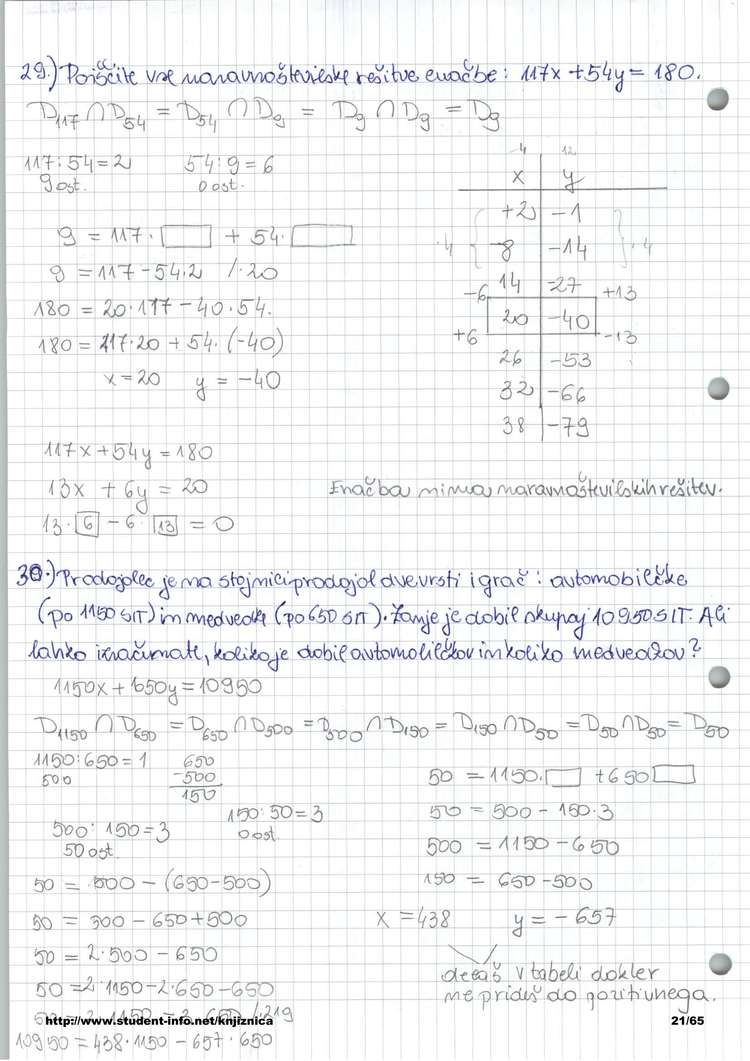 29.) Poiščite vse naravnoštevilske rešitve enačbe: 117x + 54y = 180.
D117 ∩ D54 = D54 ∩ D9 = D9 ∩ D9 = D9
117 : 54 = 2 54 : 9 = 6
9 ost. 0 ost.
9 = 117 · □ + 54 · □
9 = 117 - 54·2 /·20
180 = 20·117 - 40·54.
180 = 117·20 + 54·(-40)
x = 20 y = -40
117x + 54y = 180
13x + 6y = 20
13 · 6 - 6 · 13 = 0
-4 12
x y
+2 -1
·4 -8 -14 ·4
14 -27
-6 +13
20 -40
+6 -13
26 -53
32 -66
38 -79
Enačba nima naravnoštevilskih rešitev.
30.) Prodajalec je na stojnici prodajal dve vrsti igrač: avtomobilčke
(po 1150 SIT) in medvedke (po 650 SIT). Zanje je dobil skupaj 10950 SIT. Ali
lahko izračunate, koliko je dobil avtomobilčkov in koliko medvedkov?
1150x + 650y = 10950
D1150 ∩ D650 = D650 ∩ D500 = D500 ∩ D150 = D150 ∩ D50 = D50 ∩ D50 = D50
1150 : 650 = 1 650
500 -500
150
150 : 50 = 3
0 ost.
500 : 150 = 3
50 ost.
50 = 500 - (650-500)
50 = 500 - 650 + 500
50 = 2·500 - 650
50 = 2·1150 - 2·650 - 650
50 = 2·1150 - 3·650 /·219
10950 = 438·1150 - 657·650
50 = 1150·□ + 650□
50 = 500 - 150·3
500 = 1150 - 650
150 = 650 - 500
x = 438 y = -657
delaš v tabeli dokler
ne prideš do pozitivnega.
http://www.student-info.net/knjiznica
21/65